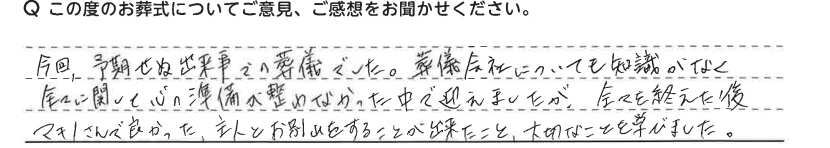 Q この度のお葬式についてご意見、ご感想をお聞かせください。
今回、予期せぬ出来事での葬儀でした。葬儀会社についても知識がなく
全てに関して心の準備が整わなかった中で迎えましたが、全てを終えた後
マキノさんで良かった、主人とお別れをすることが出来たこと、大切なことを学びました。